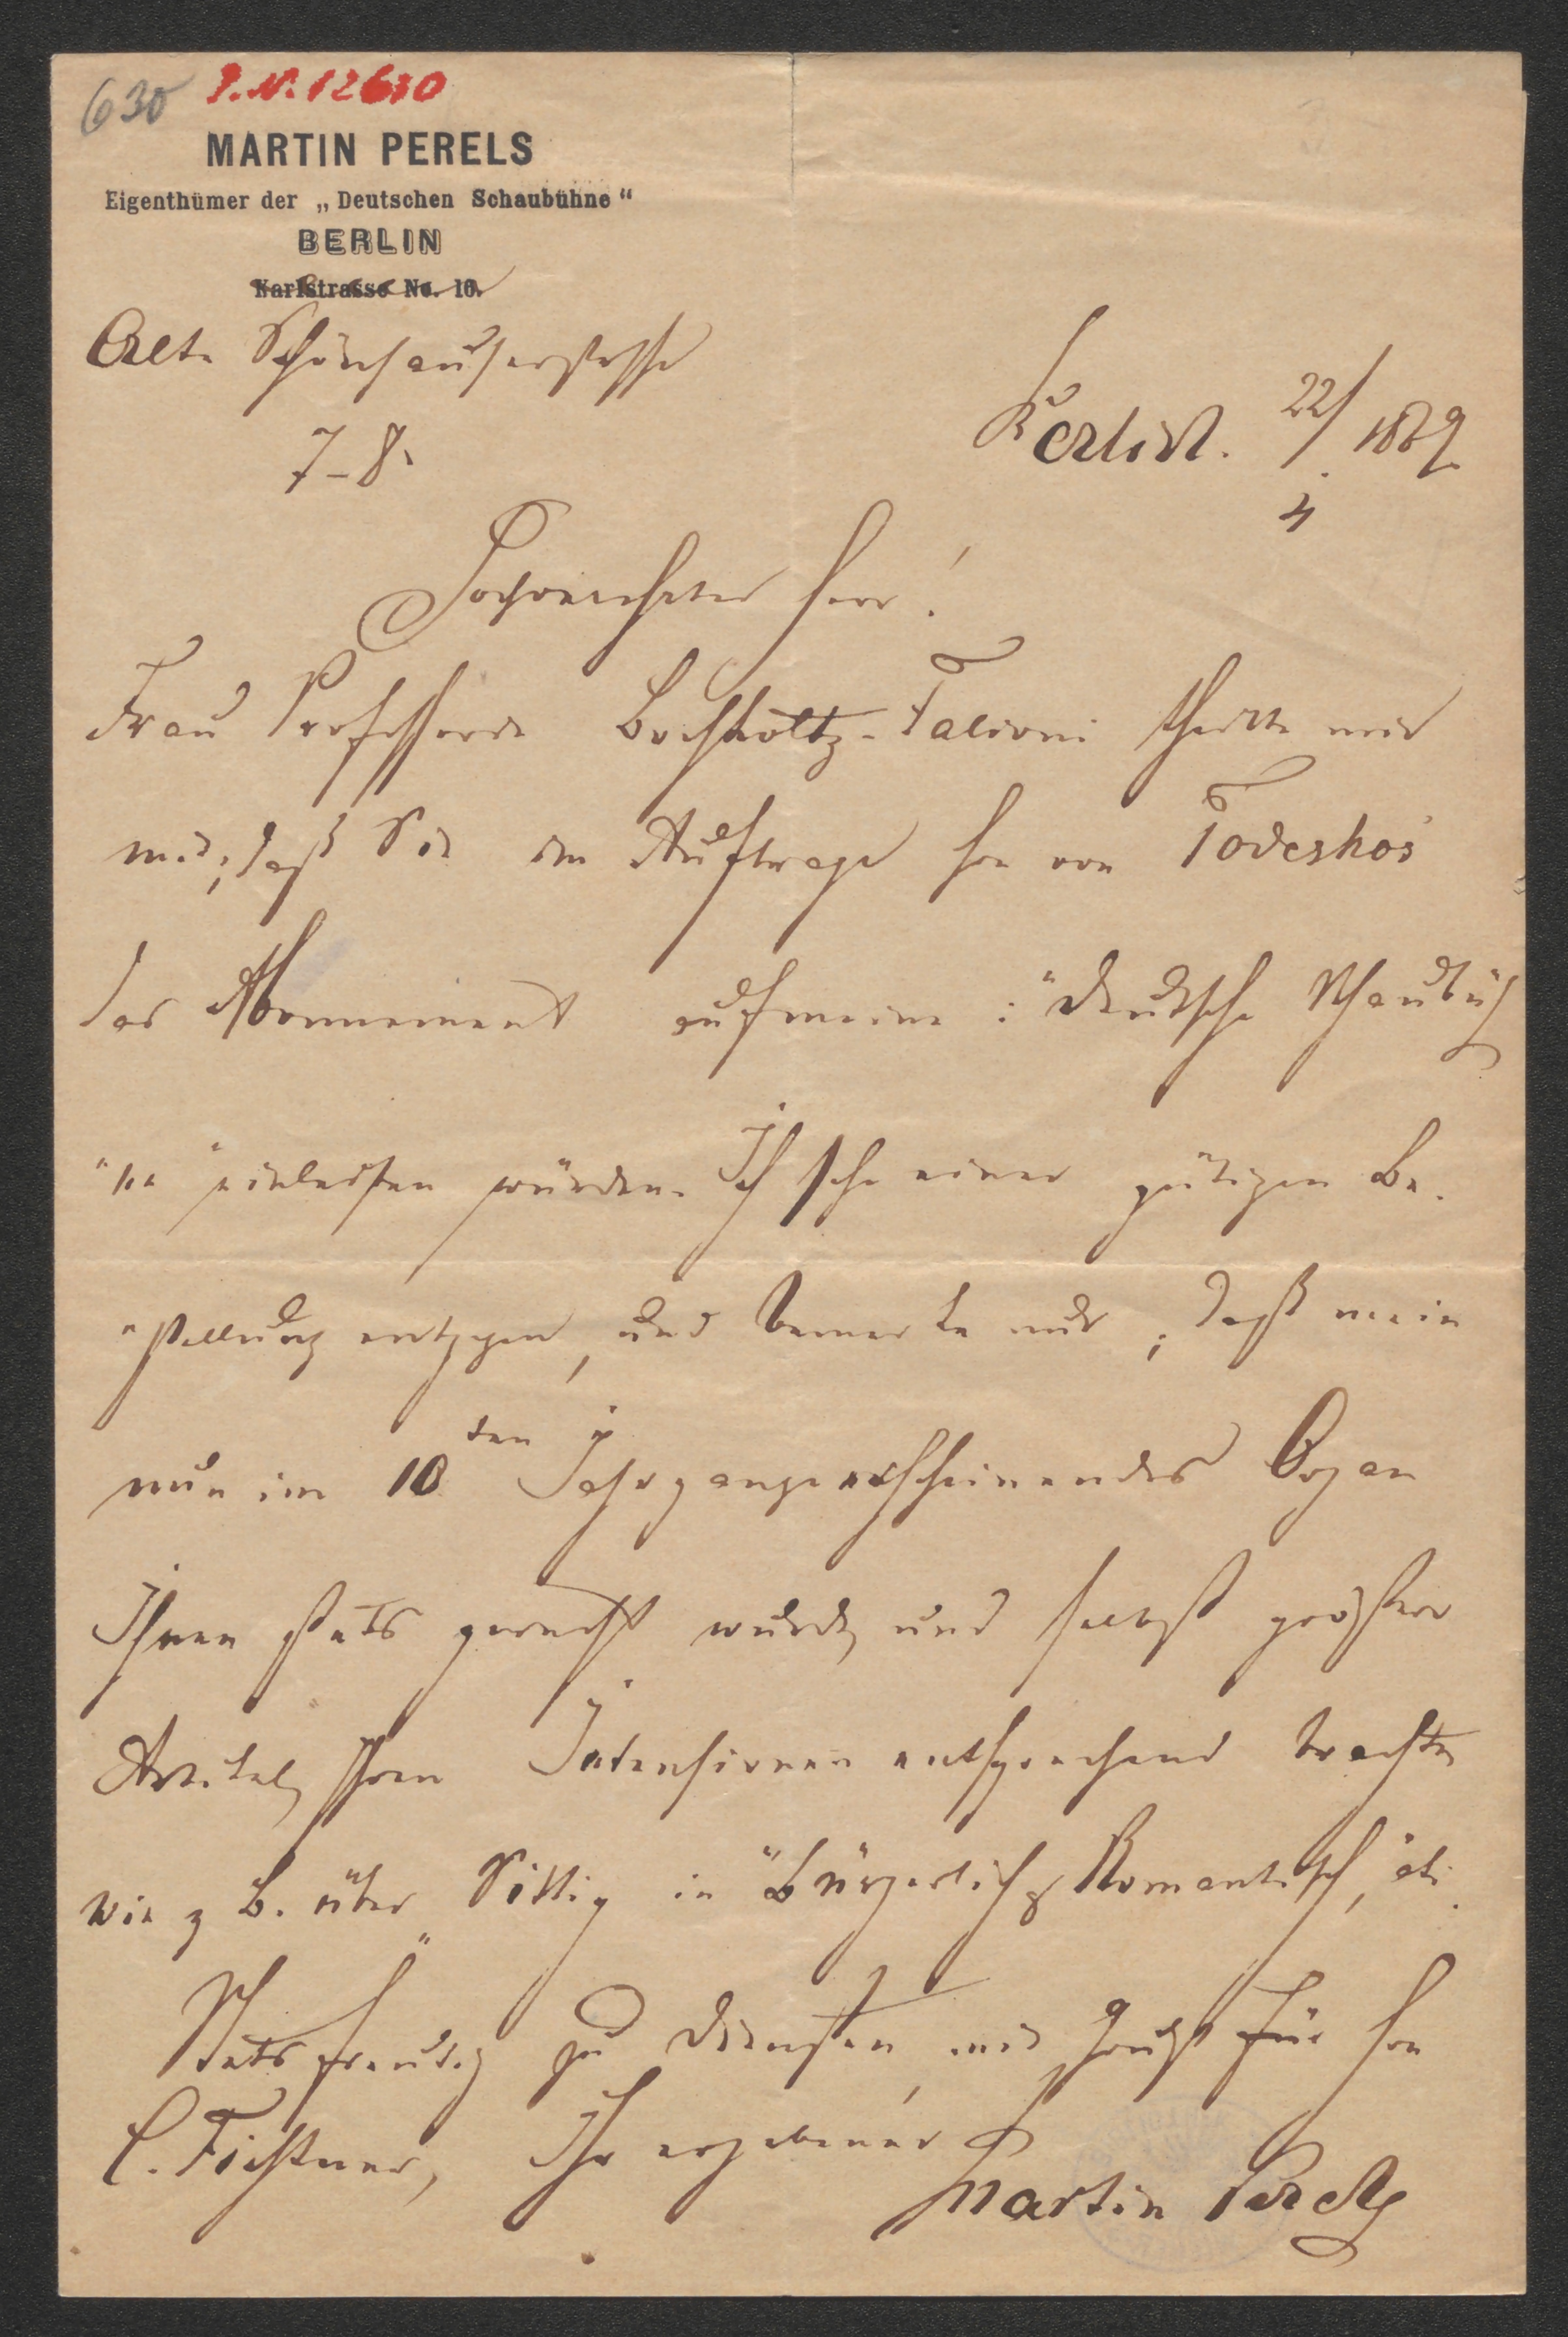 630 I.N. 12630
MARTIN PERELS
Eigenthümer der „Deutschen Schaubühne“
BERLIN
Karlstrasse No. 10.
Alte Schönhauserstrasse
7-8.
Berlin. 22/4. 1869
Hochverehrter Herr!
Frau Professorin Bochholtz-Falconi theilte mir
mit, daß Sie im Auftrage Hrn von Todesko's
das Abonnement auf meine: "Deutsche Schaubüh
"ne" einleiten würden. Ich sehe einer gütigen Be-
"stellung entgegen, und bemerke nur, daß mein
nun im 10ten Jahrgange erscheinendes Organ
Ihnen stets gerecht wurde, und selbst größere
Artikel, Ihren Intensionen entsprechend brachte,
wie z B. über Sittig in "Bürgerlich & Romantisch,"
Stets freudig zu Diensten, mit Gruß für Hrn
C. Fichtner, Ihr ergebener
Martin Perels